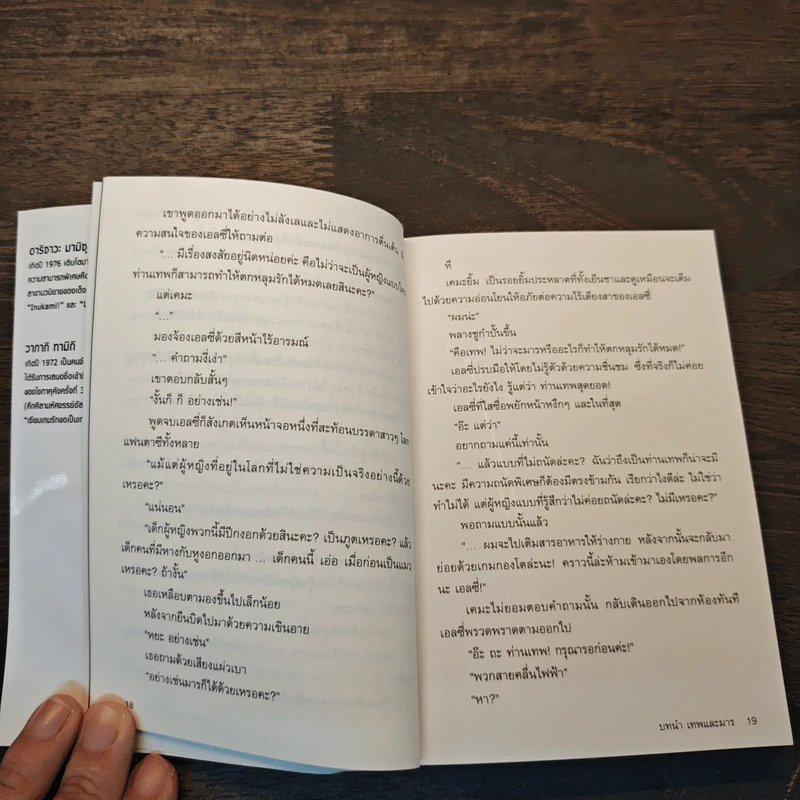 อาริซาวะ มามิซุ
เกิดปี 1976 เติบโตมา
ความสามารถพิเศษคือ
สาขานวนิยายของเด็ง
"Inukami!" และ
วากากิ ทามิกิ
เกิดปี 1972 เป็นคนจั
ได้รับการเสนอชื่อเข้าชิ
ของโชกาคุคังครั้งที่ 3
(คึกคิสามหัศจรรย์อัส
"เซียนเกมรักขอเป็นเท
เขาพูดออกมาได้อย่างไม่ลังเลและไม่แสดงอาการตื่นเต้น
ความสนใจของเอลซี่ให้ถามต่อ
"... มีเรื่องสงสัยอยู่นิดหน่อยค่ะ คือไม่ว่าจะเป็นผู้หญิงแบบไหน
ท่านเทพก็สามารถทำให้ตกหลุมรักได้หมดเลยสินะคะ?"
แต่เคมะ
"..."
มองจ้องเอลซี่ด้วยสีหน้าไร้อารมณ์
"... คำถามงี่เง่า"
เขาตอบกลับสั้นๆ
"งั้นก็ ก็ อย่างเช่น!"
พูดจบเอลซี่ก็สังเกตเห็นหน้าจอหนึ่งที่สะท้อนบรรดาสาวๆ โลก
แฟนตาซีทั้งหลาย
"แม้แต่ผู้หญิงที่อยู่ในโลกที่ไม่ใช่ความเป็นจริงอย่างนี้ด้วย
เหรอคะ?"
"แน่นอน"
"เด็กผู้หญิงพวกนี้มีปีกงอกด้วยสินะคะ? เป็นภูตเหรอคะ? แล้ว
เด็กคนที่มีหางกับหูงอกออกมา ... เด็กคนนี้ เอ่อ เมื่อก่อนเป็นแมว
เหรอคะ? ถ้างั้น"
เธอเหลือบตามองขึ้นไปเล็กน้อย
หลังจากยืนบิดไปมาด้วยความเขินอาย
"หยะ อย่างเช่น"
เธอถามด้วยเสียงแผ่วเบา
"อย่างเช่นมารก็ได้ด้วยเหรอคะ?"
18
หึ
เคมะยิ้ม เป็นรอยยิ้มประหลาดที่ทั้งเย็นชาและดูเหมือนจะเต็ม
ไปด้วยความอ่อนโยนให้อภัยต่อความไร้เดียงสาของเอลซี่
"ผมน่ะ"
พลางชูกำปั้นขึ้น
"คือเทพ! ไม่ว่าจะมารหรืออะไรก็ทำให้ตกหลุมรักได้หมด!"
เอลซี่ปรบมือให้โดยไม่รู้ตัวด้วยความชื่นชม ซึ่งที่จริงก็ไม่ค่อย
เข้าใจว่าอะไรยังไง รู้แต่ว่า ท่านเทพสุดยอด!
เอลซี่ที่ใสซื่อพยักหน้าหงึกๆ และในที่สุด
"อ๊ะ แต่ว่า"
อยากถามแค่นี้เท่านั้น
"... แล้วแบบที่ไม่ถนัดล่ะคะ? ฉันว่าถึงเป็นท่านเทพก็น่าจะมี
นะคะ มีความถนัดพิเศษก็ต้องมีตรงข้ามกัน เรียกว่าไงดีล่ะ ไม่ใช่ว่า
ทำไม่ได้ แต่ผู้หญิงแบบที่รู้สึกว่าไม่ค่อยถนัดล่ะคะ? ไม่มีเหรอคะ?"
พอถามแบบนั้นแล้ว
"... ผมจะไปเติมสารอาหารให้ร่างกาย หลังจากนั้นจะกลับมา
ย่อยด้วยเกมกองโตล่ะนะ! คราวนี้ล่ะห้ามเข้ามาเองโดยพลการอีก
นะ เอลซี่!"
เคมะไม่ยอมตอบคำถามนั้น กลับเดินออกไปจากห้องทันที
เอลซี่พรวดพราดตามออกไป
"อ๊ะ ถะ ท่านเทพ! กรุณารอก่อนค่ะ!"
"พวกสายคลื่นไฟฟ้า"
"หา?"
บทนำ เทพและมาร 19